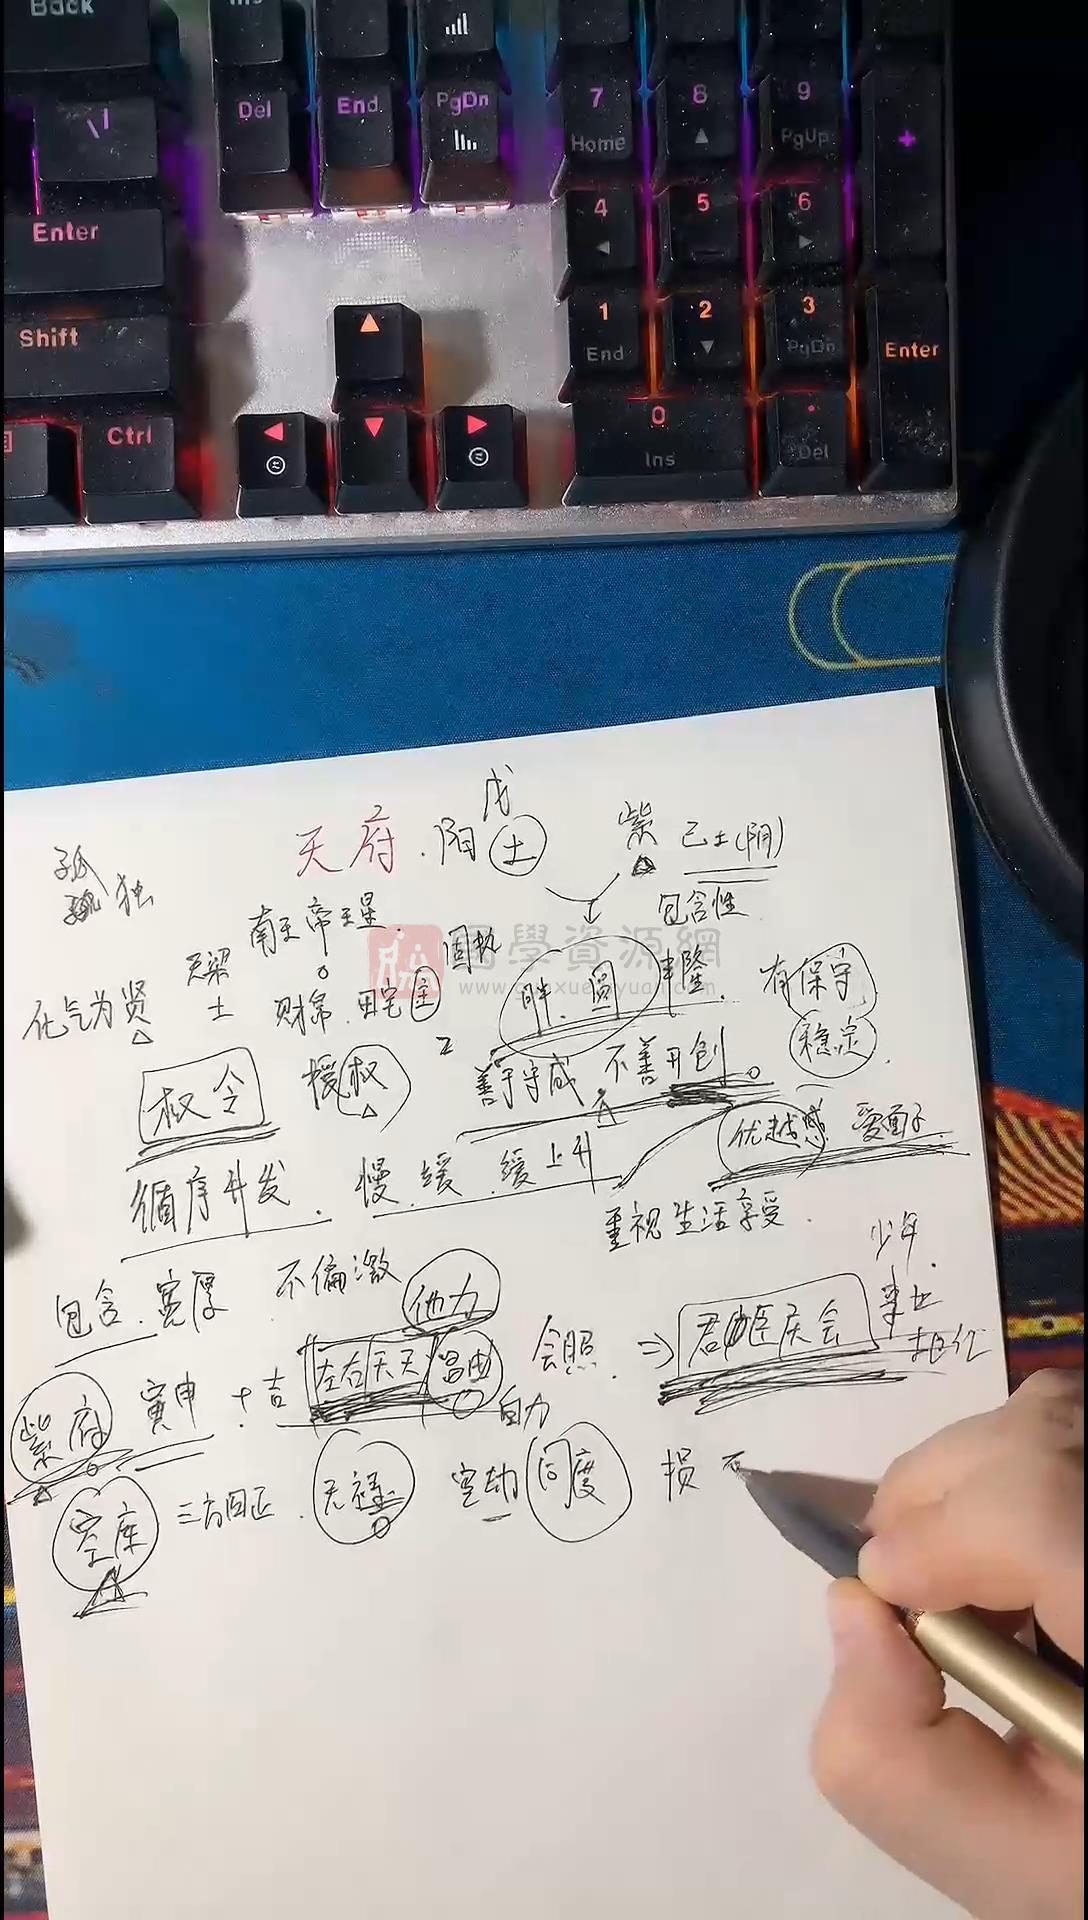 Back
Ins
\ |
Del
End
PgDn
7
Home
8
9
PgUp
+
Enter
4
5
6
Shift
1
End
2
3
PgDn
Enter
Ctrl
0
Ins
.
Del
戊
天府.阳土
紫 己土(阴)
孤
独
包含性
南天帝王星.
固执
國學資源網
www.guoxueziyuan.com
天梁
化气为贤
土
财帛.田宅主
胖.圆
丰隆.
有保守
稳定.
权令
授权
善于守成 不善开创.
优越感 爱面子
循序升发.
慢.缓.缓上升
重视生活享受.
少年.
包含.宽厚
不偏激
他力
紫府 寅申 + 吉 左右 昌曲 会照. => 君臣庆会
事业
自力
空库 三方四正.无禄 空劫 同度 损